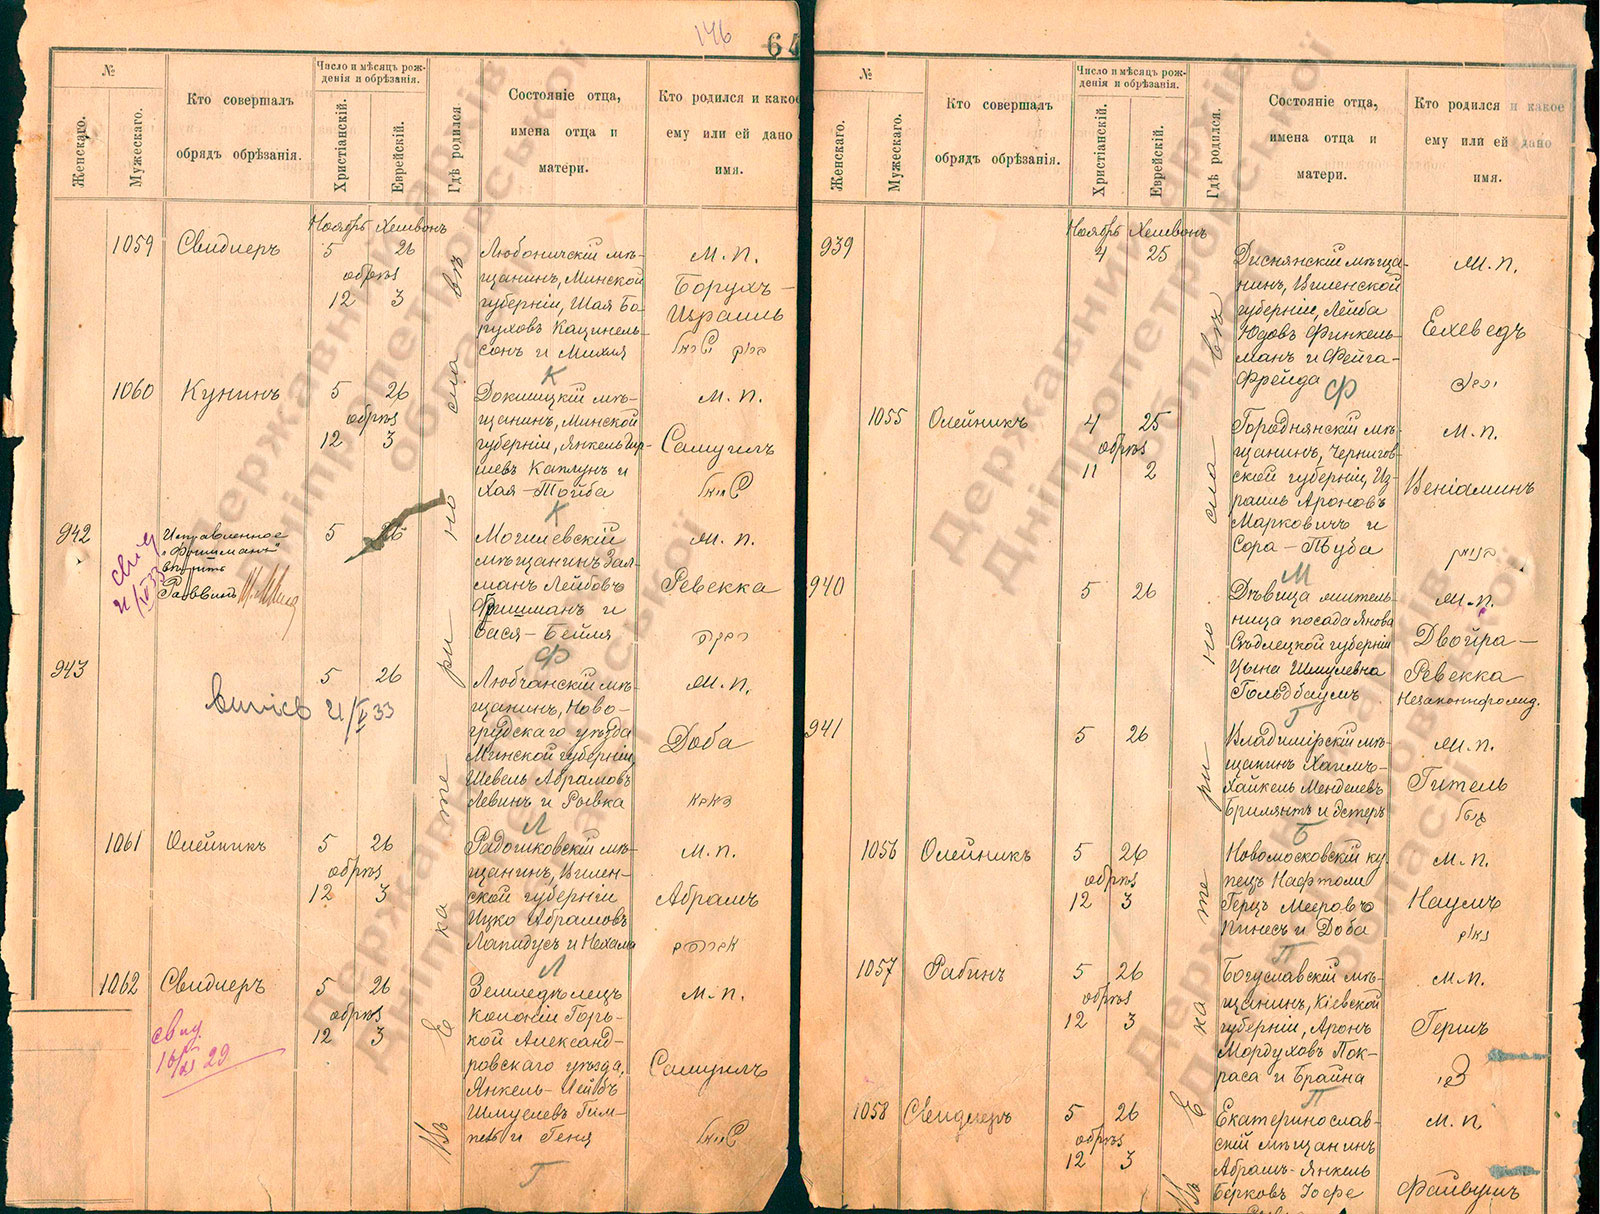 146
64
№
Женскаго.
Мужескаго.
Кто совершалъ
обрядъ обрѣзанія.
Число и мѣсяцъ рож-
денія и обрѣзанія.
Христіанскій.
Еврейскій.
Гдѣ родился
Состояніе отца,
имена отца и
матери.
Кто родился и какое
ему или ей дано
имя.
Ноябрь Хешвонъ
1059 Свидлеръ 5 26
обрѣз
12 3
Любоничскій мѣ-
щанинъ, Минской
губерніи, Шая Бо-
руховъ Кацнель-
сонъ и Михля
М. П.
Борухъ-
Израиль
К
1060 Кунинъ 5 26
обрѣз
12 3
Докшицкій мѣ-
щанинъ, Минской
губерніи, Янкель Гир-
шевъ Каплунъ и
Хая-Тойба
М. П.
Самуилъ
К
942 5 26
Исправленное
"Фришманъ"
вѣрить
Раввинъ
свид
21/V 33
Могилевскій
мѣщанинъ Зал-
манъ Лейбовъ
Фришманъ и
Бася-Бейля
М. П.
Ревекка
רבקה
Ф
943 5 26
виписъ 21/V 33
Любчанскій мѣ-
щанинъ, Ново-
грудскаго уѣзда
Минской губерніи,
Шевель Абрамовъ
Левинъ и Рывка
М. П.
Доба
דאבא
Л
1061 Олейникъ 5 26
обрѣз
12 3
Радошковскій мѣ-
щанинъ, Вилен-
ской губерніи
Ицко Абрамовъ
Лапидусъ и Нехама
М. П.
Абрамъ
אברהם
Л
1062 Свидлеръ 5 26
обрѣз
12 3
свид
16/XI 29
Земледѣлецъ
колоніи Горь-
кой Александ-
ровскаго уѣзда,
Янкель-Лейбъ
Шмуелевъ Гим-
пель и Геня
М. П.
Самуилъ
Г
Въ Екатеринославѣ
№
Женскаго.
Мужескаго.
Кто совершалъ
обрядъ обрѣзанія.
Число и мѣсяцъ рож-
денія и обрѣзанія.
Христіанскій.
Еврейскій.
Гдѣ родился.
Состояніе отца,
имена отца и
матери.
Кто родился и какое
ему или ей дано
имя.
Ноябрь Хешвонъ
939 4 25
Диснянскій мѣща-
нинъ, Виленской
губерніи, Лейба
Юдовъ Финкель-
манъ и Фейга-
Фрейда
М. П.
Ехеведъ
Ф
1055 Олейникъ 4 25
обрѣз
11 2
Городнянскій мѣ-
щанинъ, Чернигов-
ской губерніи, Из-
раиль Ароновъ
Марковичъ и
Сора-Люба
М. П.
Веніаминъ
בנימן
М
940 5 26
Дѣвица житель-
ница посада Янова
Сѣдлецкой губерніи
Цына Шмулевна
Гольдбаумъ
М. П.
Двойра-
Ревекка
Незаконнорожд.
Г
941 5 26
Владимірскій мѣ-
щанинъ Хаимъ-
Хайкель Менделевъ
Брилянтъ и Эстеръ
М. П.
Гитель
Б
1056 Олейникъ 5 26
обрѣз
12 3
Новомосковскій ку-
пецъ Нафтоли
Герцъ Мееровъ
Пинесъ и Доба
М. П.
Наумъ
נאום
П
1057 Рабинъ 5 26
обрѣз
12 3
Богуславскій мѣ-
щанинъ, Кіевской
губерніи, Аронъ
Мордуховъ Пок-
раса и Брайна
М. П.
Гершъ
П
1058 Свидлеръ 5 26
обрѣз
12 3
Екатеринослав-
скій мѣщанинъ
Абрамъ-Янкель
Берковъ Іофе
М. П.
Файвушъ
Въ Екатеринославѣ
Державний архів
Дніпропетровської
області